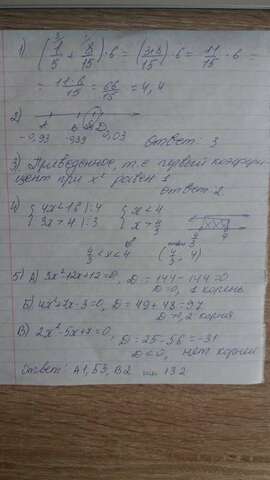 1) (1/5 + 8/15) · 6 = (3+8/15) · 6 = 11/15 · 6 =
= 11·6/15 = 66/15 = 4,4
2) A B C D
-0,93 0,03
Ответ: 3
3) Приведенное, т.е первый коэффи
циент при x² равен 1
Ответ: 2
4) { 4x<16 |:4 { x<4
{ 3x>4 |:3 { x>4/3
4/3 < x < 4 (4/3; 4)
5) А) 3x²-12x+12=0, D = 144-144=0
D=0, 1 корень
Б) 4x²+7x-3=0, D = 49+48=97
D>0, 2 корня
В) 2x²-5x+7=0,
D = 25-56=-31
D<0, нет корней
Ответ: А1, Б3, В2 или 132